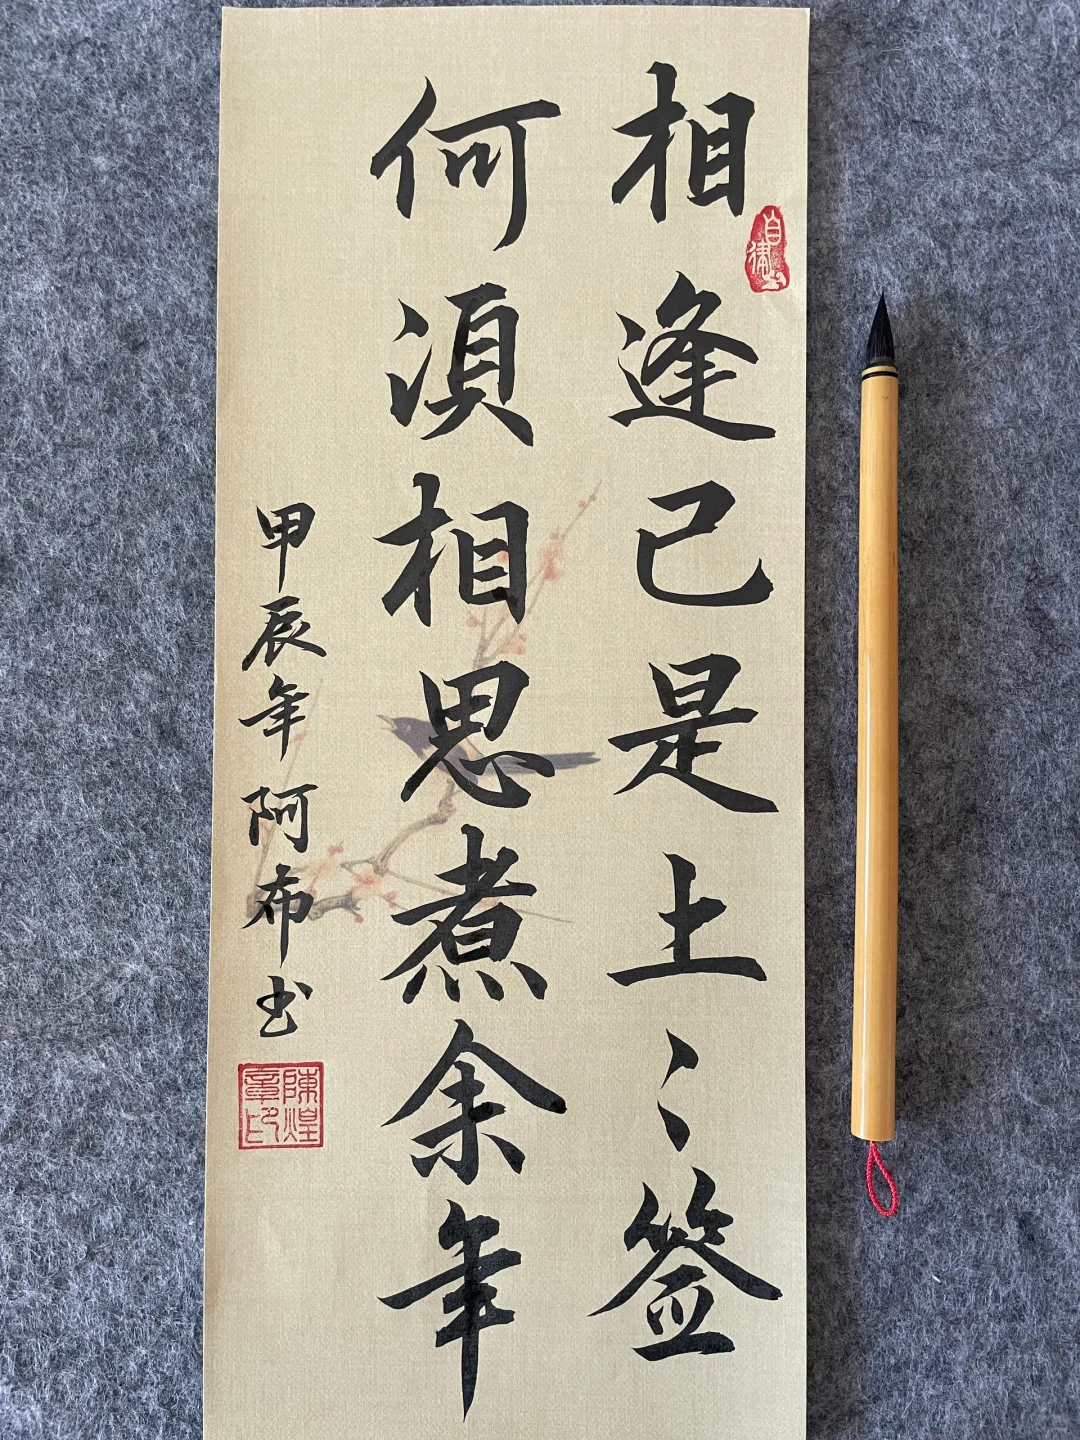 相逢已是上〻签
何湏相思煮余年
甲辰年阿布书
自律
陳煌
章印